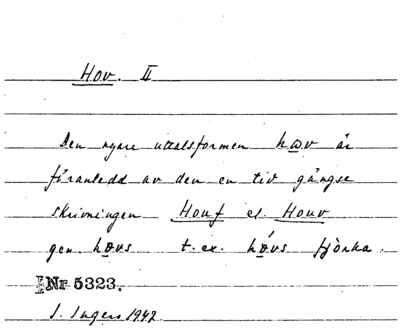 Hov. II
Den nyare uttalsformen hɷv är
föranledd av den en tid gängse
skrivningen Houf el. Houv
gen. hɷvs t. ex. hɷ́vs fjò̀rka.
Nr 5323.
I. Ingers 1942.